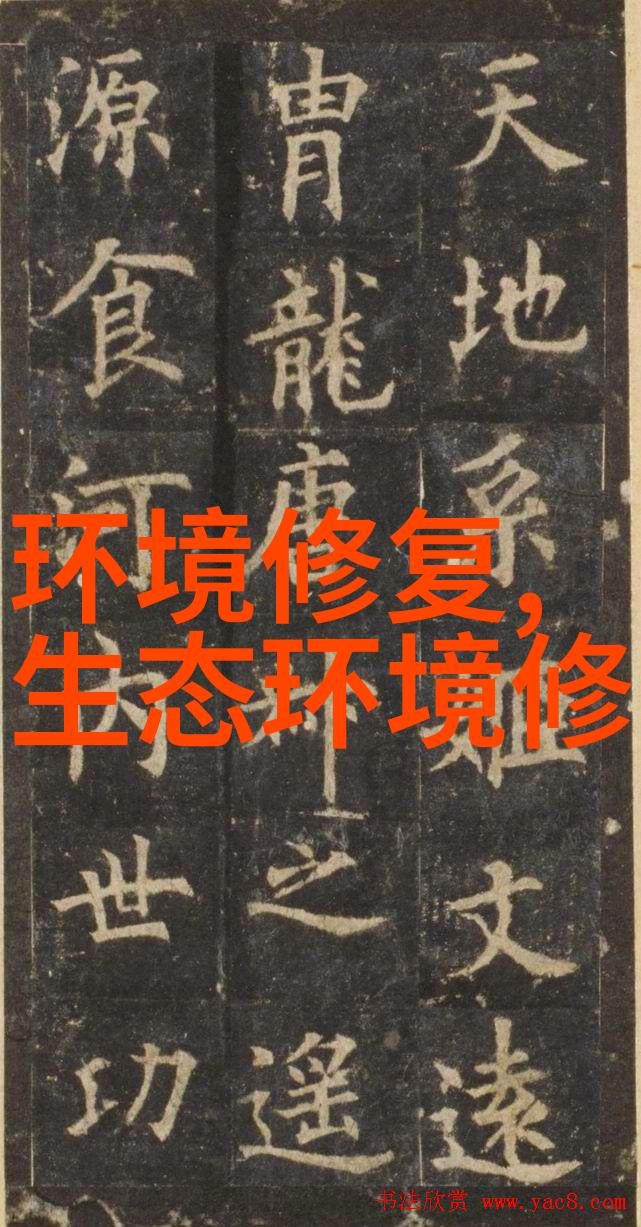 环境修复,
生态环境修
天地系姬文遠
胄龍唐之遥
源食河内世功
书法欣赏 www.yac8.com